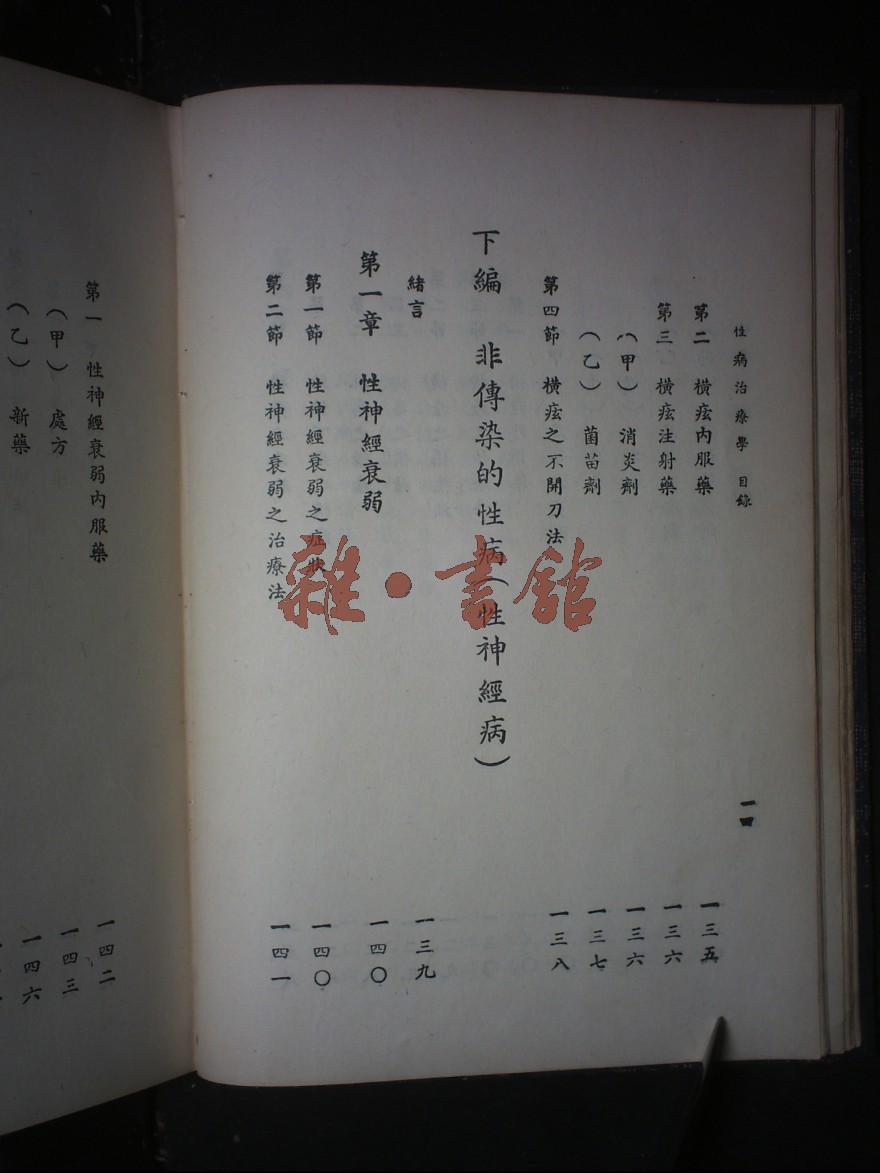 性病治療學 目錄
一四
第二 橫痃內服藥 一三五
第三 橫痃注射藥 一三六
(甲) 消炎劑 一三六
(乙) 菌苗劑 一三七
第四節 橫痃之不開刀法 一三八
下編 非傳染的性病(性神經病)
緒言 一三九
第一章 性神經衰弱 一四〇
第一節 性神經衰弱之症狀 一四〇
第二節 性神經衰弱之治療法 一四一
雜·書館
第一 性神經衰弱內服藥 一四二
(甲) 處方 一四三
(乙) 新藥 一四六